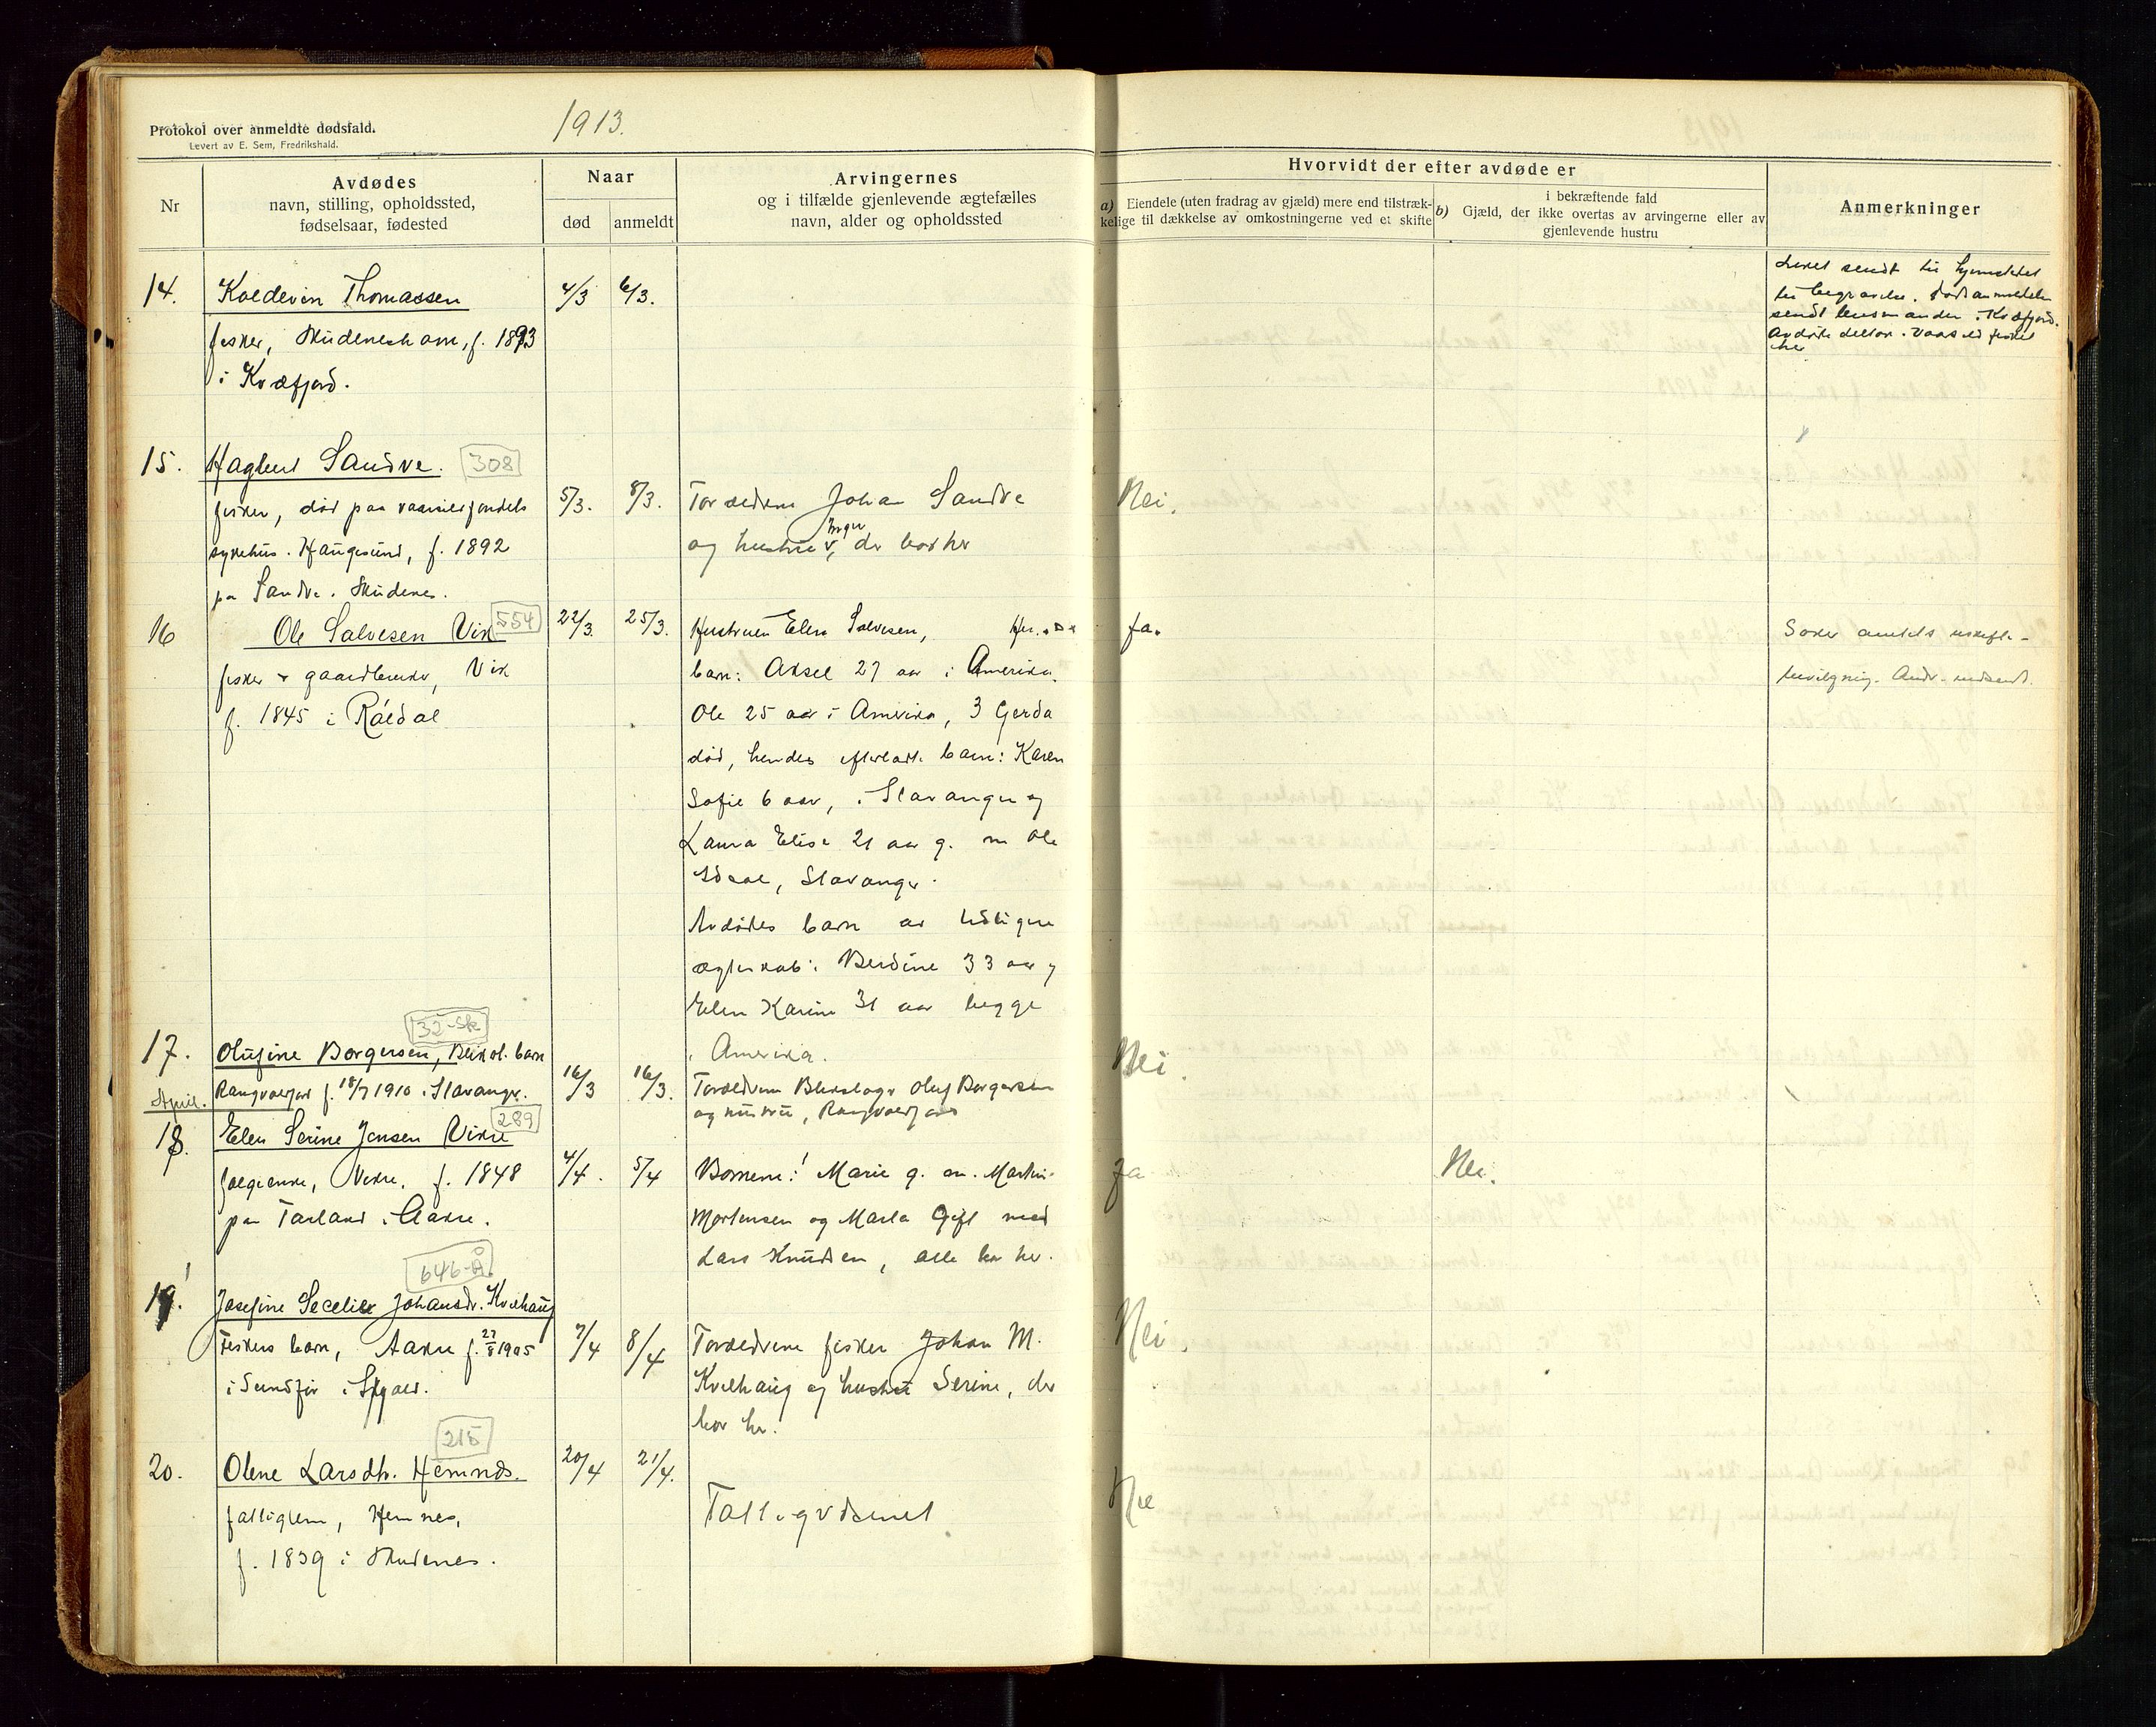 Protokol over anmeldte dødsfald.
Levert av E. Sem, Fredrikshald.
1913.
Nr
Avdødes
navn, stilling, opholdssted,
fødselsaar, fødested
Naar
død
anmeldt
Arvingernes
og i tilfælde gjenlevende ægtefælles
navn, alder og opholdssted
Hvorvidt der efter avdøde er
a) Eiendele (uten fradrag av gjæld) mere end tilstræk-
kelige til dækkelse av omkostningerne ved et skifte
b) i bekræftende fald
Gjæld, der ikke overtas av arvingerne eller av
gjenlevende hustru
Anmerkninger
14.
Koldevin Thomassen
fisker, Skudenesham, f. 1893
i Kvæfjord.
4/3
6/3.
Liket sendt til hjemstedet
til begravelse. Dødsanmeldelse
sendt lensmanden i Kvæfjord.
Avdøde deltok i vaarsildfisket
her
15.
Hagbert Sandve. 308
fisker, død paa vaarsildfondets
sykehus i Haugesund, f. 1892
pa Sandve i Skudenes.
5/3.
8/3.
Forældrene Johan Sandve
og hustru Inger, der bor her
Nei.
16
Ole Salvesen Vik 554
fisker & gaardbruker, Vik
f. 1845 i Røldal
22/3.
25/3.
Hustruen Elen Salvesen, Her.
barn: Aksel 27 aar i Amerika.
Ole 25 aar i Amerika, 3 Gerda
død, hendes efterladte barn: Karen
Sofie 6 aar, i Stavanger og
Laura Elise 21 aar g. m Ole
Idsal, Stavanger.
Avdødes barn av tidligere
ægteskab: Berdine 33 aar og
Elen Karine 31 aar begge
i Amerika.
Ja.
Søker amtets uskifte-
bevilgning. Andr. indsendt.
17.
32-Sk
Olufine Borgersen, Bliksl. barn
Rangvaldjord f. 18/7 1910 i Stavanger.
16/3
16/3.
Forældrene Blikslager Oluf Borgersen
og hustru, Rangvaldjord
Nei.
April.
18.
Elen Serine Jensen Vikre 289
folgeenke, Vikre, f. 1848
paa Tarland i Aakre.
4/4.
5/4
Børnene: Marie g. m. Martin
Mortensen og Marta Gift med
Lars Knudsen, alle bor her.
Ja
Nei.
19.
646-Å
Josefine Secelie Johansdr. Kvilhaug
Fiskers barn, Aakre f. 27/8 1905
i Sundfør i Skjold.
7/4
8/4
Forældrene fisker Johan M.
Kvilhaug og hustru Serine, der
bor her.
Nei.
20.
215
Olene Larsdtr. Hemnes.
fattiglem, Hemnes,
f. 1839 i Skudenes.
20/4
21/4.
Fattigvæsenet
Nei